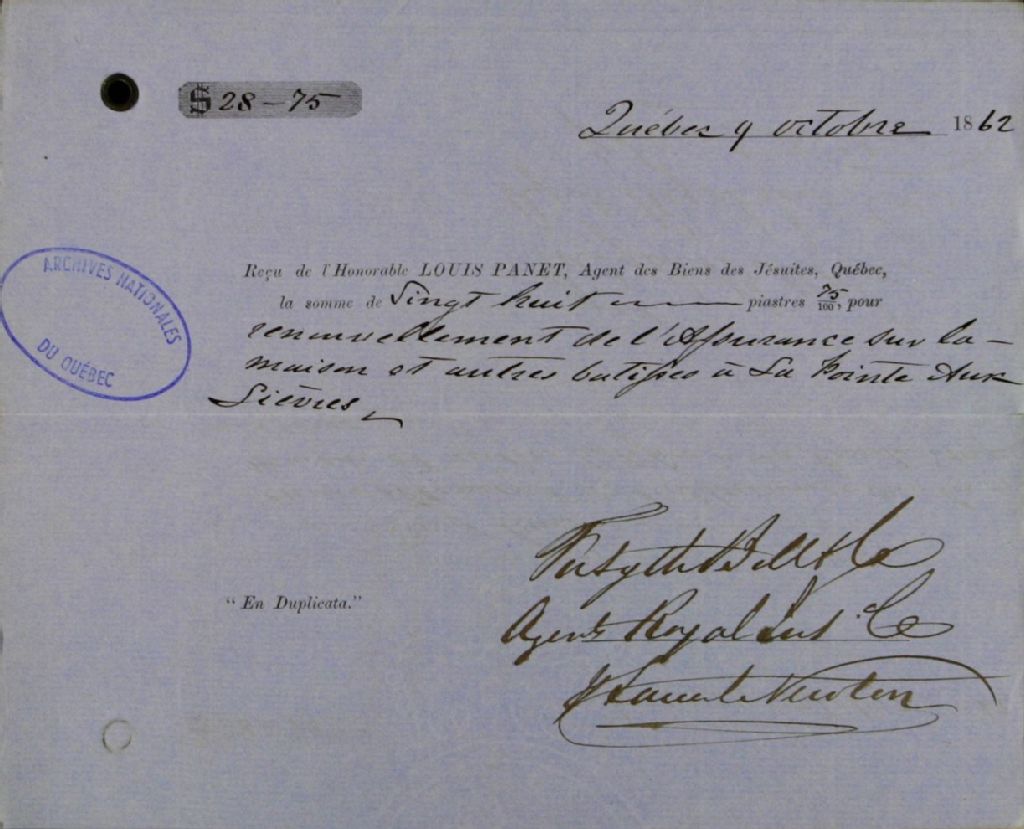 $ 28-75
Québec 9 octobre 1862
ARCHIVES NATIONALES
DU QUÉBEC
Reçu de l'Honorable LOUIS PANET, Agent des Biens des Jésuites, Québec,
la somme de Vingt huit piastres 75/100, pour
renouvellement de l'Assurance sur la
maison et autres batisses à La Pointe Aux
Lièvres
Forsyth Bell & Co
"En Duplicata."
Agents Royal Ins. Co
Newton